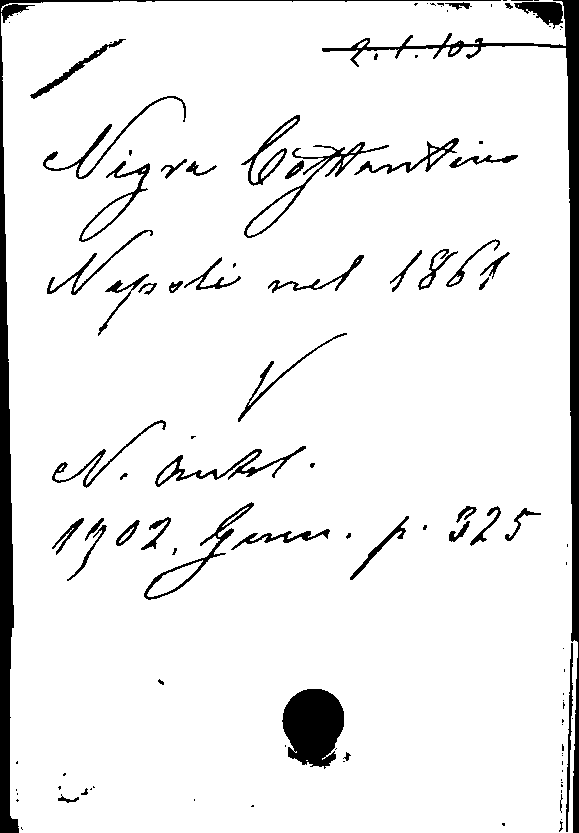 2.1.103
Nigra Costantino
Napoli nel 1861
V
N. Antol.
1902. Genn. p. 325